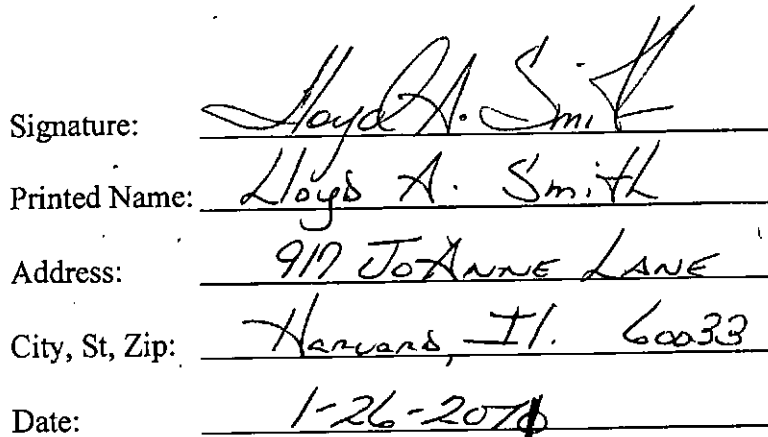 Signature: Lloyd A. Smith
Printed Name: Lloyd A. Smith
Address: 917 JoAnne Lane
City, St, Zip: Harvard, Il. 60033
Date: 1-26-